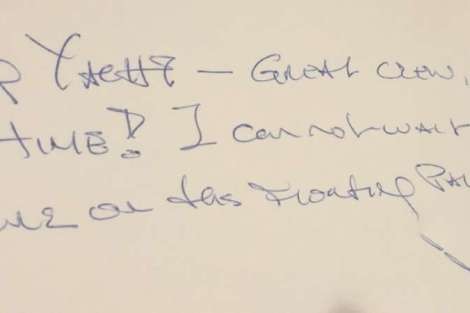 Yacht — Great crew,
time! I cannot wait
on this Floating